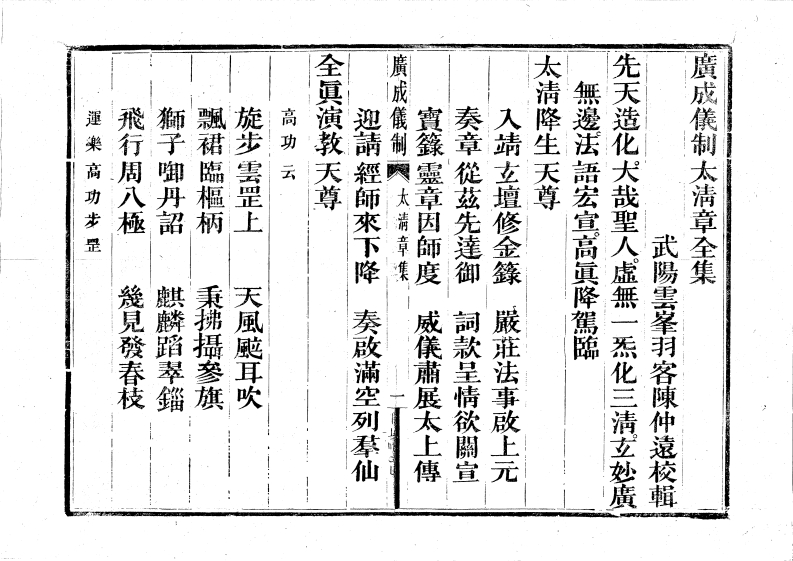 廣成儀制太清章全集
武陽雲峯羽客陳仲遠校輯
先天造化大哉聖人虛無一炁化三淸玄妙廣
無邊法語宏宣高眞降駕臨
太淸降生天尊
入靖玄壇修金籙　嚴莊法事啟上元
奏章從茲先達御　詞款呈情欲關宣
寶籙靈章因師度　威儀肅展太上傳
廣成儀制　太清章集　一
迎請經師來下降　奏啟滿空列羣仙
全眞演教天尊
高功云
旋步雲罡上　天風颭耳吹
飄裙臨樞柄　秉拂攝參旗
獅子啣丹詔　麒麟蹈翠錙
飛行周八極　幾見發春枝
運樂高功步罡